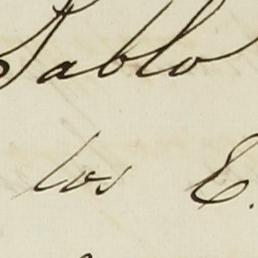 Pablo
los E.